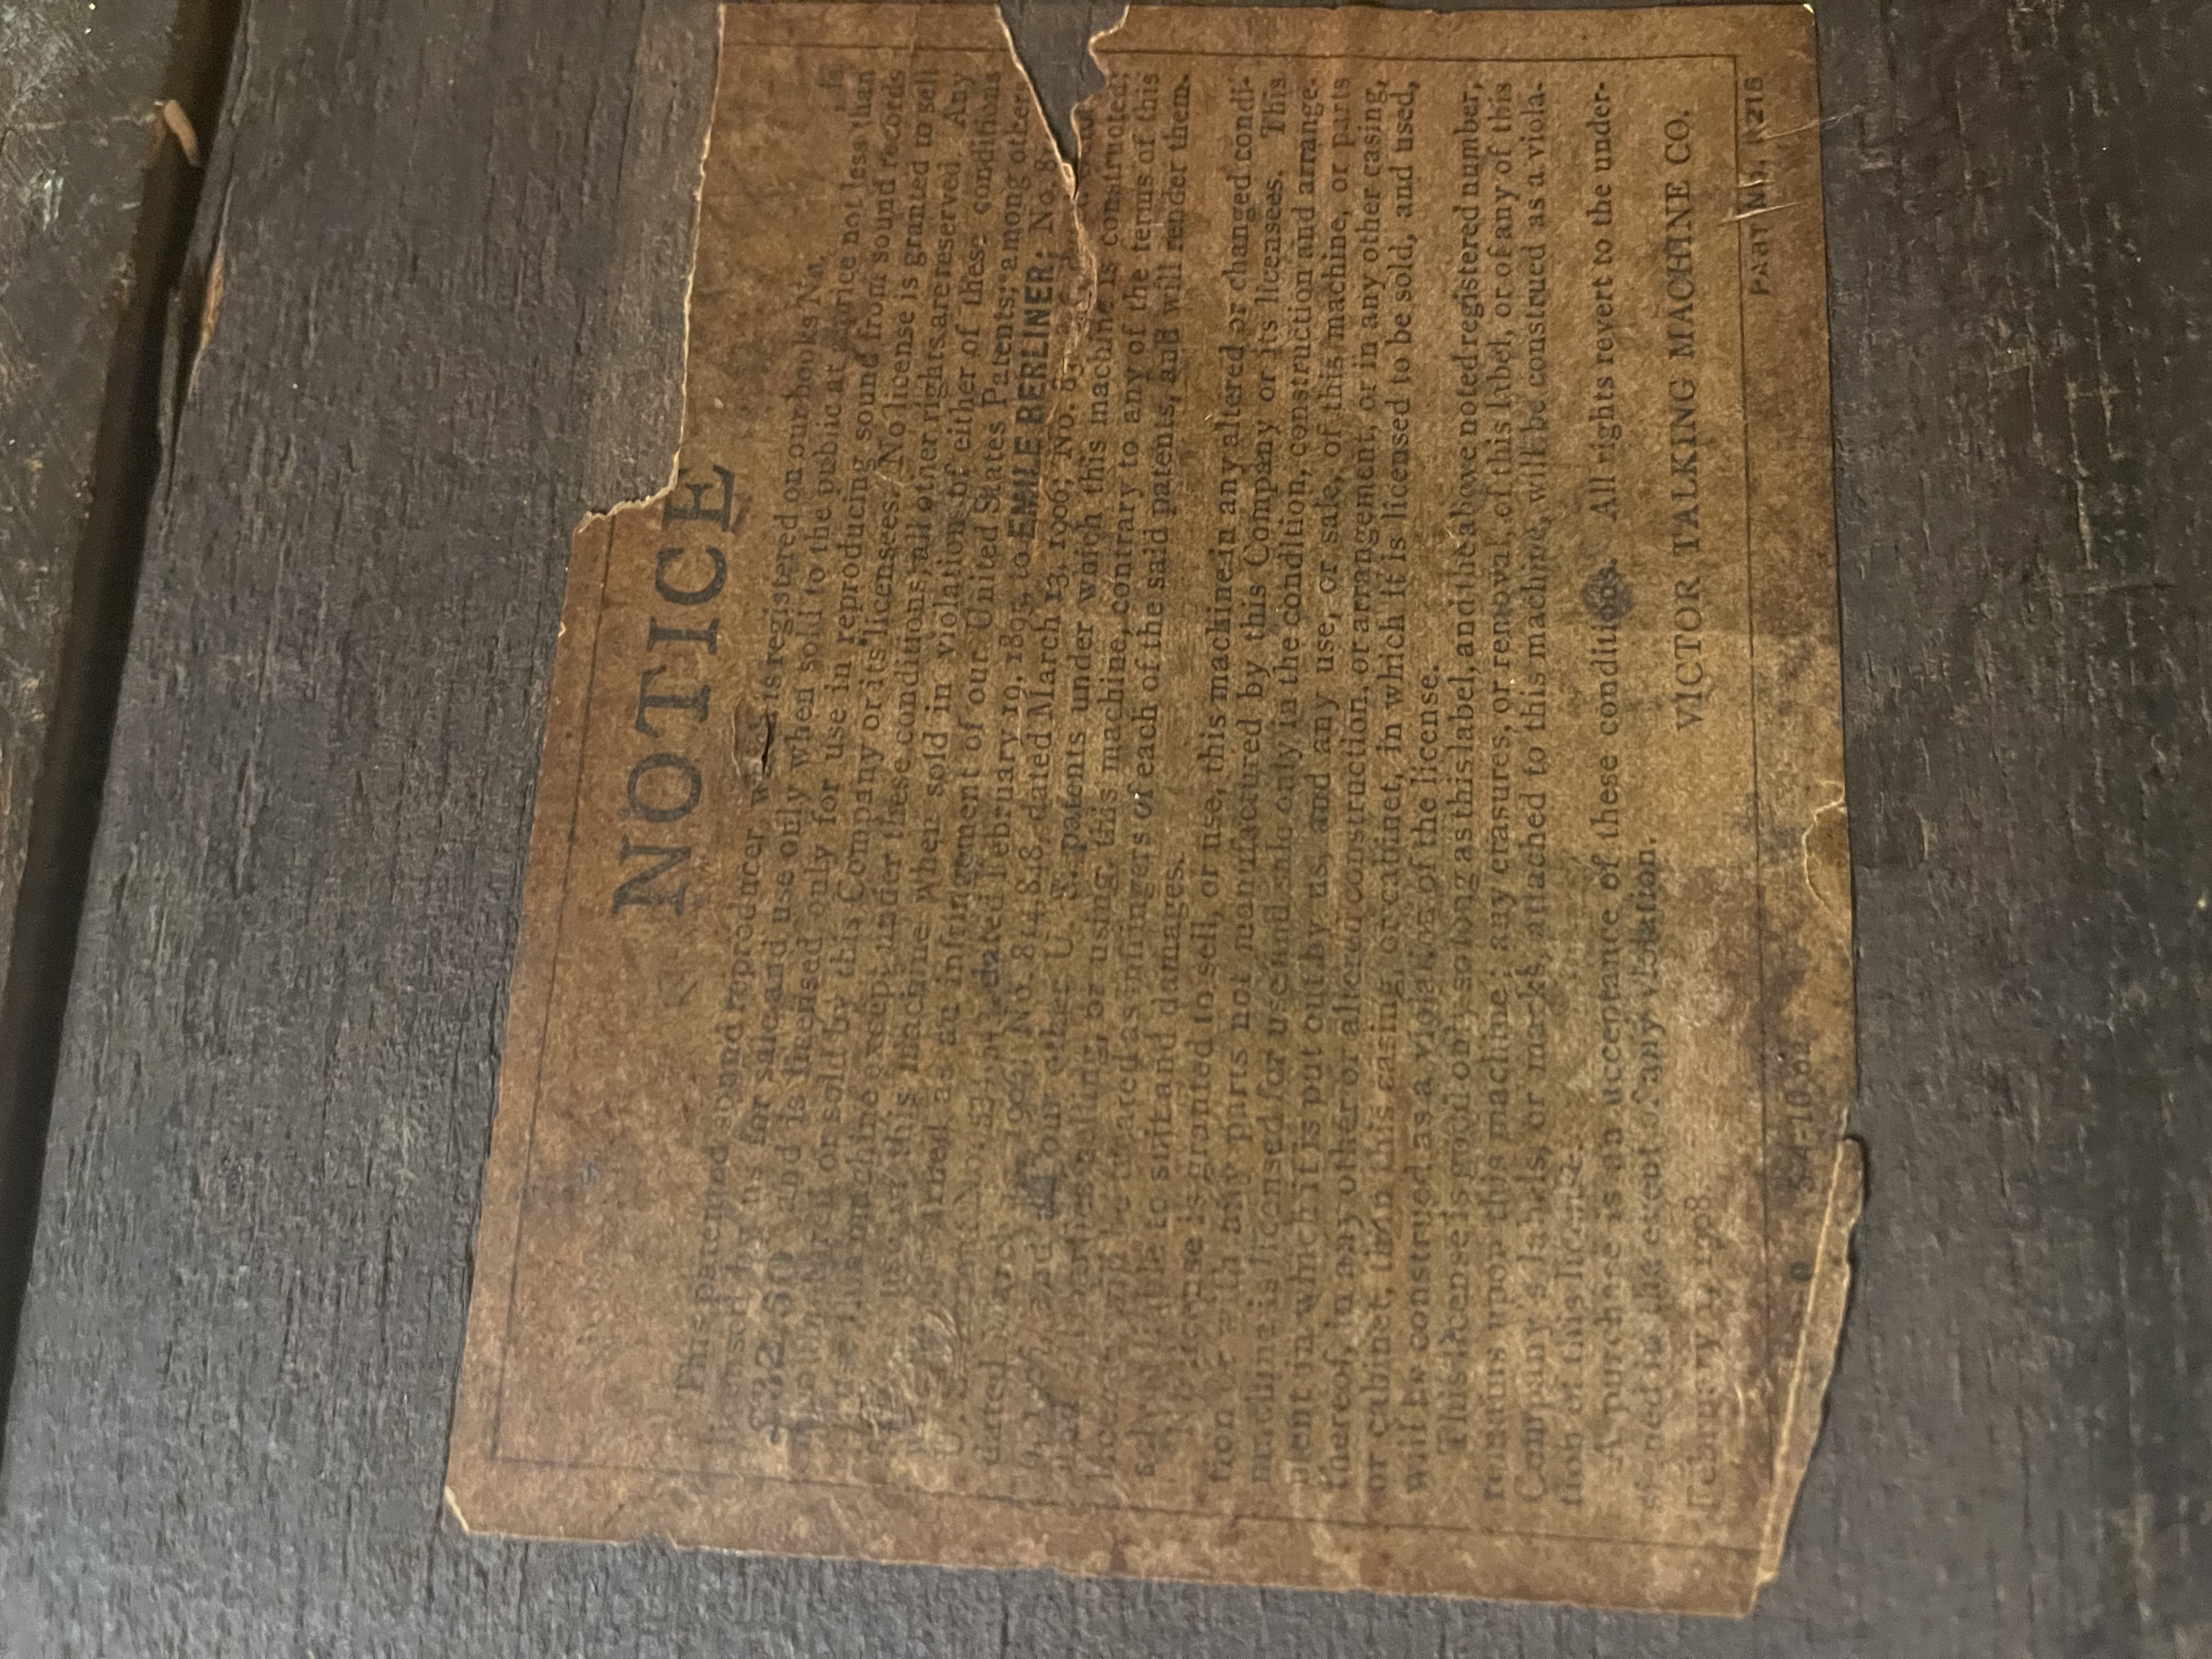 NOTICE
This patented sound reproducer is registered on our books No.
licensed by us for sale and use only when sold to the public at a price not less than
$32.50 and is licensed only for use in reproducing sound from sound records
or sold by this Company or its licensees. No license is granted to sell
this machine except under these conditions, all other rights are reserved Any
this machine when sold in violation of either of these conditions
as an infringement of our United States Patents; among others
dated February 19, 1895, to EMILE BERLINER; No.
No. 814,848, dated March 13, 1906; No.
our other U. S. patents under which this machine is constructed;
selling, or using, this machine, contrary to any of the terms of this
as infringers of each of the said patents, and will render them.
liable to suit and damages.
license is granted to sell, or use, this machine in any altered or changed condi-
tion or with any parts not manufactured by this Company or its licensees. This
machine is licensed for use and sale only in the condition, construction and arrange-
ment in which it is put out by us, and any use, or sale, of this machine, or parts
thereof, in any other or altered construction, or arrangement, or in any other casing,
or cabinet, than this casing, or cabinet, in which it is licensed to be sold, and used,
will be construed as a violation of the license.
This license is good only so long as this label, and the above noted registered number,
remains upon this machine; any erasures, or removal, of this label, or of any of this
Company's labels, or marks, attached to this machine, will be construed as a viola-
tion of this license.
A purchase is an acceptance of these conditions. All rights revert to the under-
signed in the event of any violation.
VICTOR TALKING MACHINE CO.
February 1, 1908.
PART No. 1216